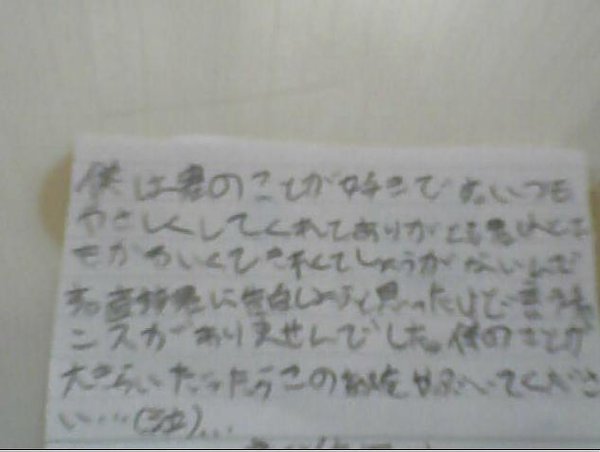 僕は君のことが好きです。いつも
やさしくしてくれてありがとう君はとて
もかわいくてきれくてしょうがないんで
す。直接君に告白しようと思ったけど言うチャ
ンスがありませんでした。僕のことが
大きらいだったらこの紙をやぶいてくださ
い…(泣)…